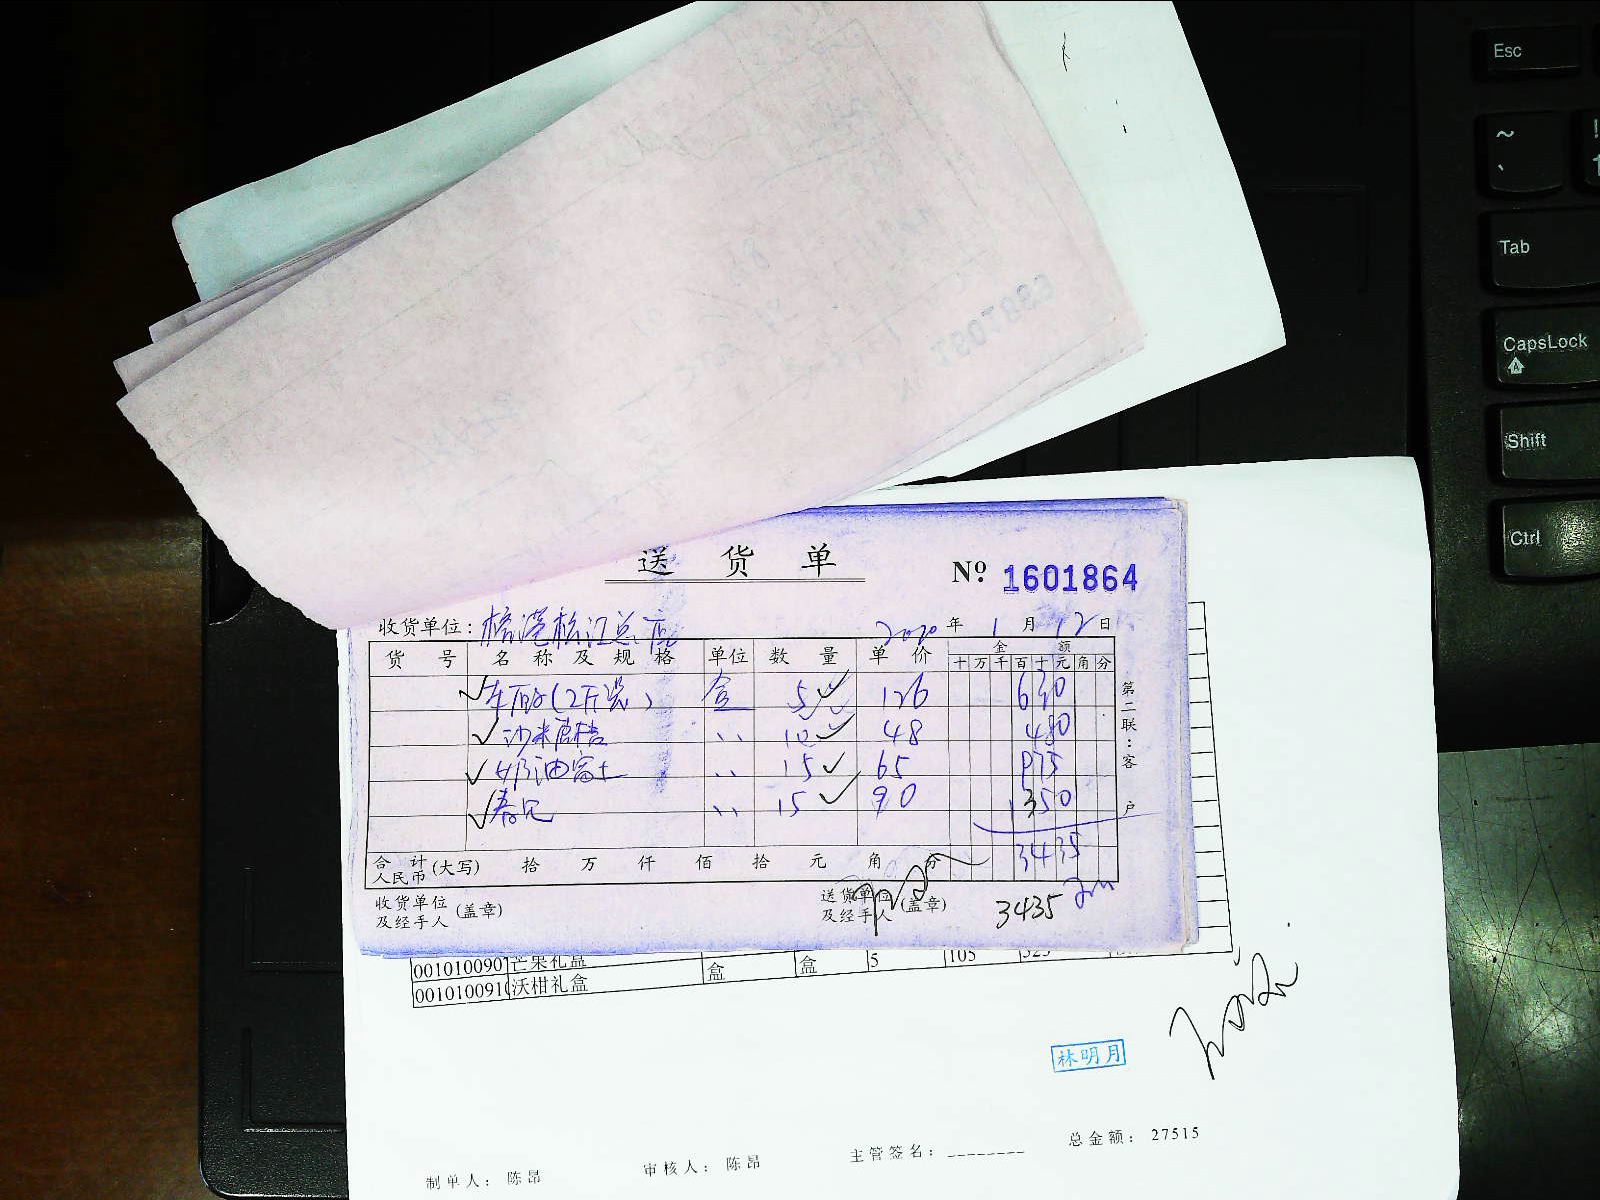 Esc
~
Tab
CapsLock
Shift
Ctrl
送货单 Nº 1601864
收货单位: 2020年1月12日
货号 名称及规格 单位 数量 单价 金额
十万千百十元角分
车厘子(2斤装) 盒 5 126 630
沙米 10 48 480
奶油富士 15 65 975
春见 15 90 1350
3435
合计人民币(大写) 拾 万 仟 佰 拾 元 角 分
收货单位及经手人(盖章) 送货单位及经手人(盖章) 3435
第二联:客户
001010090 芒果礼盒 盒 盒 5 105 525
001010091 沃柑礼盒
林明月
制单人: 陈昂 审核人: 陈昂 主管签名: 总金额: 27515